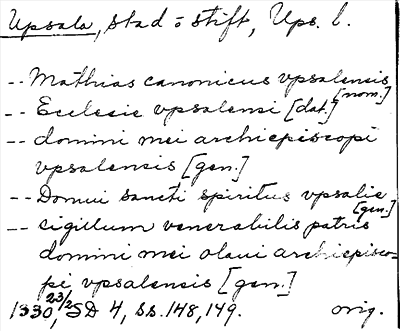 Upsala, stad o stift, Ups. l.
-- Mathias canonicus vpsalensis [nom.]
-- Ecclesie vpsalensi [dat.]
-- domini mei archiepiscopi
vpsalensis [gen.]
-- Domui sancti spiritus vpsalie [gen.]
-- sigillum venerabilis patris
domini mei olaui archiepisco-
pi vpsalensis [gen.]
1330 23/2, SD 4, ss. 148, 149. orig.